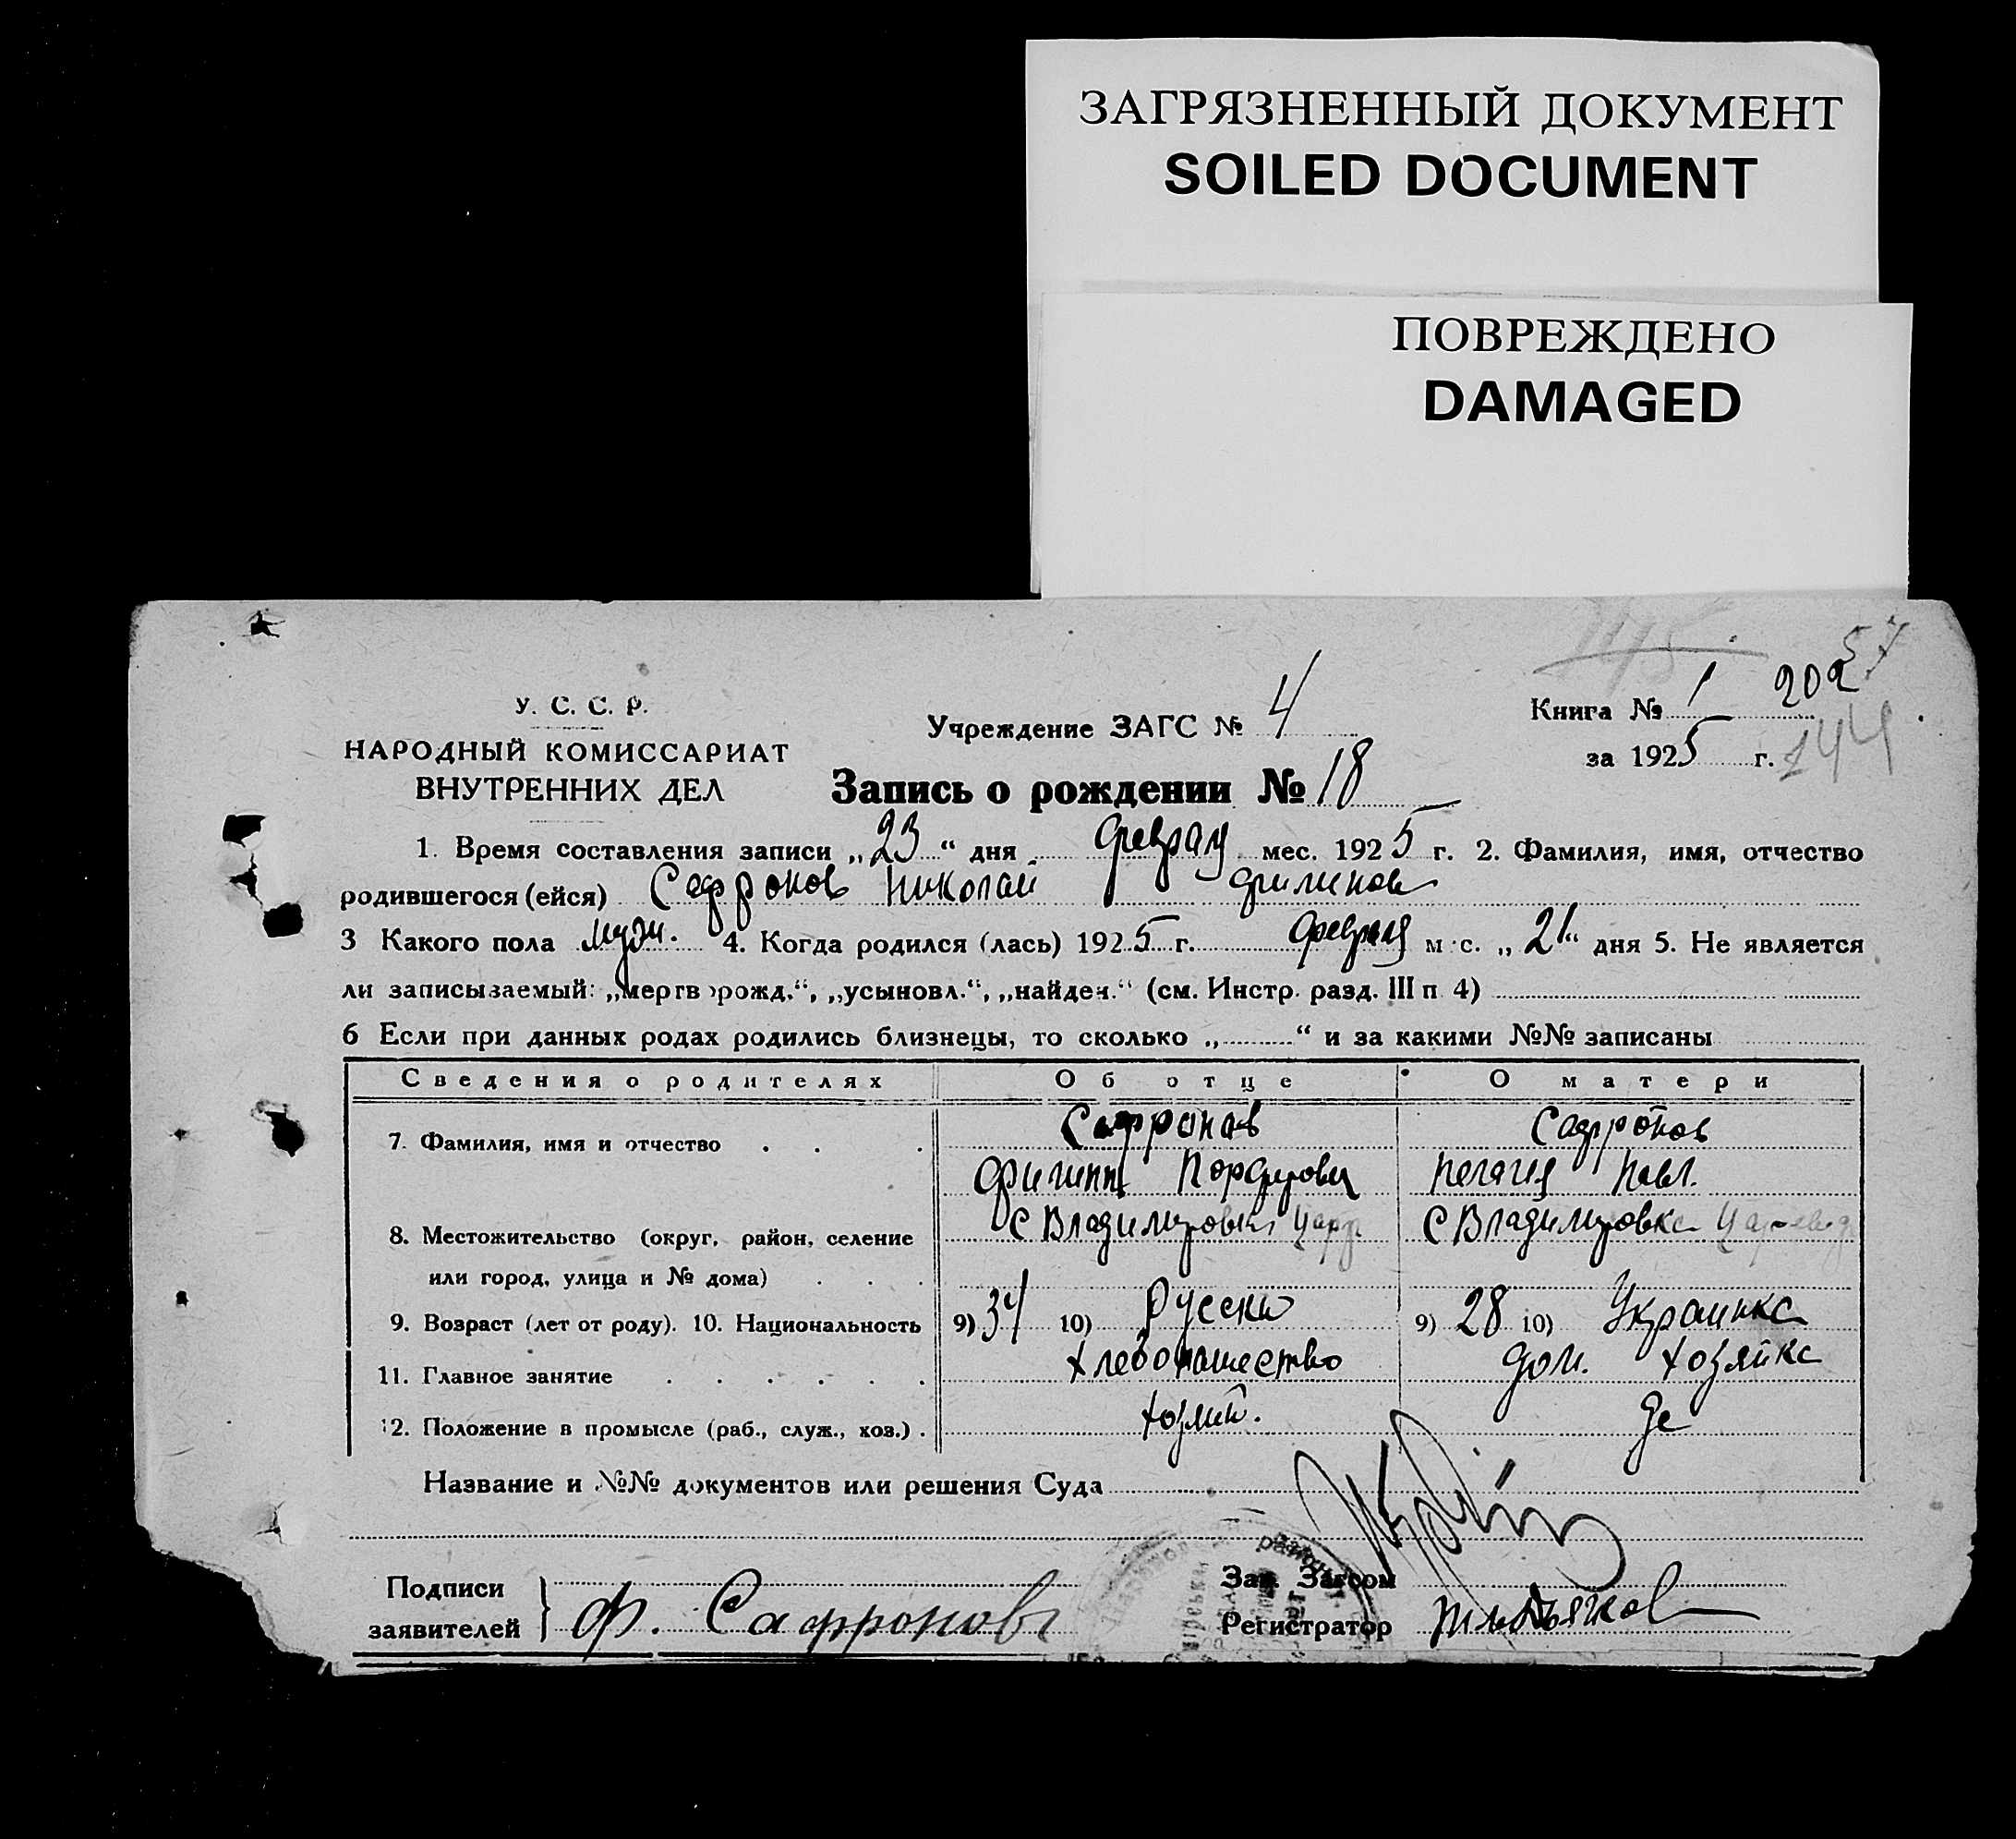 ЗАГРЯЗНЕННЫЙ ДОКУМЕНТ
SOILED DOCUMENT
ПОВРЕЖДЕНО
DAMAGED
145 57
У. С. С. Р.
НАРОДНЫЙ КОМИССАРИАТ
ВНУТРЕННИХ ДЕЛ
Учреждение ЗАГС № 4
Книга № 1 202
за 1925 г. 144
Запись о рождении № 18
1. Время составления записи „23“ дня феврал мес. 1925 г. 2. Фамилия, имя, отчество
родившегося (ейся) Сафронов Николай Филипов
3 Какого пола муж. 4. Когда родился (лась) 1925 г. февраля м с. „21“ дня 5. Не является
ли записываемый: „мертворожд.“, „усыновл.“, „найден.“ (см. Инстр. разд. III п 4)
6 Если при данных родах родились близнецы, то сколько „ “ и за какими №№ записаны
Сведения о родителях Об отце О матери
7. Фамилия, имя и отчество Сафронов Сафронов
Филипп Порфирович Пелагея Павл.
8. Местожительство (округ, район, селение С Владимировка С Владимировка
или город, улица и № дома)
9. Возраст (лет от роду). 10. Национальность 9) 34 10) Русски 9) 28 10) Украинка
11. Главное занятие хлебопашество дом. хозяйка
12. Положение в промысле (раб., служ., хоз.) хозяин. де
Название и №№ документов или решения Суда
Подписи
заявителей Ф. Сафронов
Зав. Загсом
Регистратор